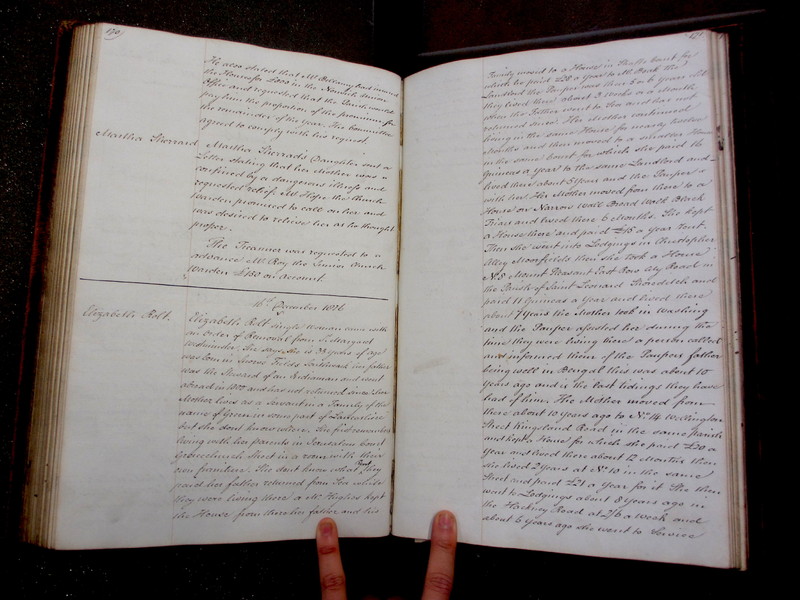 170
He also stated that Mr Bellamy had insured
the House for £800 in the Norwich Union
Office and requested that the Parish would
pay him the proportion of the premium for
the remainder of the year. The Committee
agreed to comply with his request.
Martha Sherrard
Martha Sherrard's Daughter sent a
Letter stating that her Mother was
confined by a dangerous illness and
requested relief. Mr Hope the Church
Warden promised to call on her and
was desired to relieve her as he thought
proper.
The Treasurer was requested to
advance Mr Roy the Junior Church
Warden £150 on Account.
December 1826
Elizabeth Rolt.
Elizabeth Rolt single Woman came with
an order of Removal from St Margaret
Westminster. She says she is 33 years of age
was born in Fields Southwark her father
was the Steward of an Indiaman and went
abroad in and has not returned since her
Mother lives as a Servant in a Family of the
name of Green in some part of Lancashire
but she dont know where. She first remembers
living with her parents in Jerusalem Court
Gracechurch Street in a room with their
own furniture. She dont know what Rent they
paid her father returned from Sea while
they were living there a Mr Hughes kept
the House from there her father and his
171
Family moved to a House in Court for
which he paid £20 a Year to Mr the
Landlord the Pauper was then 5 or 6 Years old
they lived there about 3 Weeks or a Month
when the Father went to Sea and has not
returned since. Her Mother continued
living in the same House for nearly twelve
Months and then moved to a smaller House
in the same Court for which she paid 16
Guineas a Year to the same Landlord and
lived there about 5 Years and the Pauper
with her. Her Mother moved from there to a
House on Narrow Wall Broad Wall Black
Friars and lived there 6 Months. She kept
a House there and paid £16 a Year Rent.
Then she went into Lodgings in Christopher
Alley Moorfields then she took a House
No 8 Mount Pleasant East Row City Road in
the Parish of Saint Leonard Shoreditch and
paid 11 Guineas a Year and lived there
about 7 Years the Mother took in Washing
and the Pauper assisted her during the
time they were living there a person called
and informed them of the Paupers father
being well in Bengal this was about 10
Years ago and is the last tidings they have
had of him. Her Mother moved from
there about 10 Years ago to No 14 Wellington
Street Kingsland Road in the same parish
and kept a House for which she paid £20 a
Year and lived there about 12 Months then
she lived 2 Years at No 10 in the same
Street and paid £21 a Year for it She then
went to Lodgings about 8 Years ago in
the Hackney Road at 2/6 a Week and
about 6 Years ago she went to Service